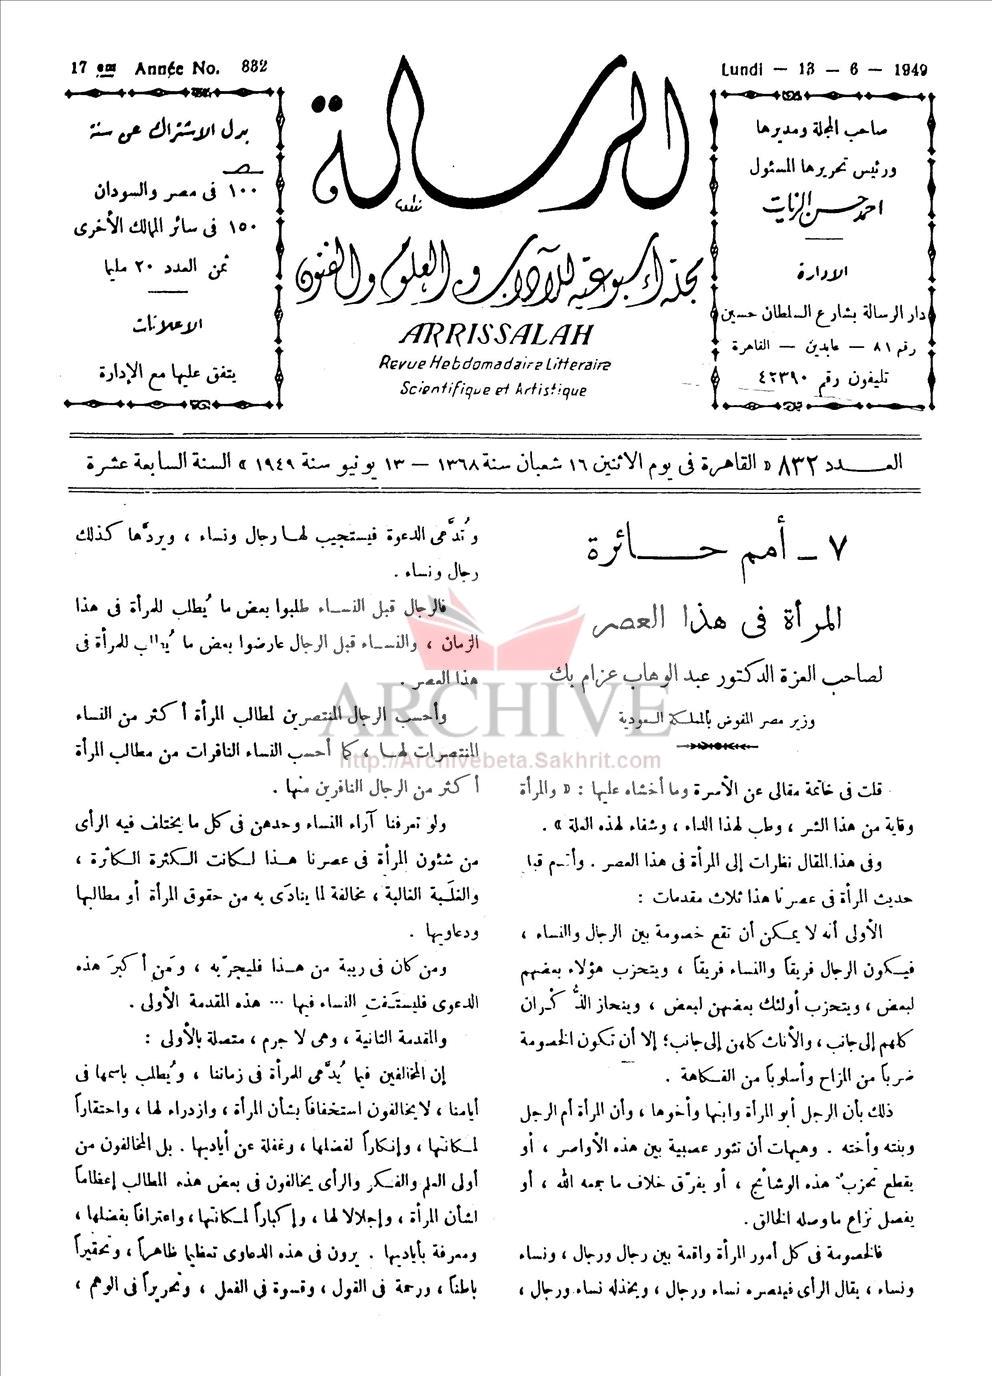 17 em Année No. 832
Lundi — 13 — 6 — 1949
صاحب المجلة ومديرها
ورئيس تحريرها المسئول
احمد حسن الزيات
الادارة
دار الرسالة بشارع السلطان حسين
رقم ٨١ — عابدين — القاهرة
تليفون رقم ٤٢٣٩٠
الرسالة
مجلة أسبوعية للآداب والعلوم والفنون
ARRISSALAH
Revue Hebdomadaire Litteraire
Scientifique et Artistique
بدل الاشتراك عن سنة
١٠٠ فى مصر والسودان
١٥٠ فى سائر الممالك الأخرى
ثمن العدد ٢٠ مليما
الاعلانات
يتفق عليها مع الإدارة
العـــدد ٨٣٢ « القاهرة فى يوم الاثنين ١٦ شعبان سنة ١٣٦٨ — ١٣ يونيو سنة ١٩٤٩ » السنة السابعة عشرة
٧ ـ أمم حـــائرة
المرأة فى هذا العصر
لصاحب العزة الدكتور عبد الوهاب عزام بك
وزير مصر المفوض بالمملكة السعودية
قلت فى خاتمة مقالى عن الأسرة وما أخشاه عليها : « والمرأة
وقاية من هذا الشر ، وطب لهذا الداء ، وشفاء لهذه العلة » .
وفى هذا المقال نظرات إلى المرأة فى هذا العصر . وأقدم قبل
حديث المرأة فى عصرنا هذا ثلاث مقدمات :
الأولى أنه لا يمكن أن تقع خصومة بين الرجال والنساء ،
فيكون الرجال فريقاً والنساء فريقاً ، ويتحزب هؤلاء بعضهم
لبعض ، ويتحزب أولئك بعضهن لبعض ، وينحاز الذُّكران
كلهم إلى جانب ، والأناث كلهن إلى جانب؛ إلا أن تكون الخصومة
ضرباً من المزاح وأسلوباً من الفكاهة .
ذلك بأن الرجل أبو المرأة وابنها وأخوها ، وأن المرأة أم الرجل
وبنته وأخته . وهيهات أن تثور عصبية بين هذه الأواصر ، أو
يقطع تحزبٌ هذه الوشائج ، أو يفرّق خلاف ما جمعه الله ، أو
يفصل نزاع ما وصله الخالق .
فالخصومة فى كل أمور المرأة واقعة بين رجال ورجال ، ونساء
ونساء ، يقال الرأى فينصره نساء ورجال ، ويخذله نساء ورجال ،
وتُدَّعى الدعوة فيستجيب لهـا رجال ونساء ، ويردّها كذلك
رجال ونساء .
فالرجال قبل النساء طلبوا بعض ما يُطلب للمرأة فى هذا
الزمان ، والنساء قبل الرجال عارضوا بعض ما يُطلب للمرأة فى
هذا العصر .
وأحسب الرجال المنتصرين لمطالب المرأة أكثر من النساء
المنتصرات لهـا ، كما أحسب النساء النافرات من مطالب المرأة
أكثر من الرجال النافرين منها .
ولو تعرفنا آراء النساء وحدهن فى كل ما يختلف فيه الرأى
من شئون المرأة فى عصرنا هـذا لكانت الكثرة الكاثرة ،
والغلَبة الغالبة ، مخالفة لما ينادَى به من حقوق المرأة أو مطالبها
ودعاويها .
ومن كان فى ريبة من هـذا فليجرّبه ، ومَن أكبرَ هذه
الدعوى فليستَفت النساء فيها ... هذه المقدمة الأولى .
والمقدمة الثانية ، وهى لا جرم ، متصلة بالأولى :
إن المخالفين فيما يُدَّعى للمرأة فى زماننا ، ويُطلب باسمها فى
أيامنا ، لا يخالفون استخفافاً بشأن المرأة ، وازدراء لها ، واحتقاراً
لمكانتها ، وإنكاراً لفضلها ، وغفلة عن أياديها . بل المخالفون من
أولى العلم والفكر والرأى يخالفون فى بعض هذه المطالب إعظاماً
لشأن المرأة ، وإجلالا لها ، وإكباراً لمكانتها، واعترافاً بفضلها ،
ومعرفة بأياديها . يرون فى هذه الدعاوى تعظيما ظاهراً ، وتحقيراً
باطناً ، ورحمة فى القول ، وقسوة فى الفعل ، وتحريراً فى الوهم ،
ARCHIVE
http://Archivebeta.Sakhrit.com